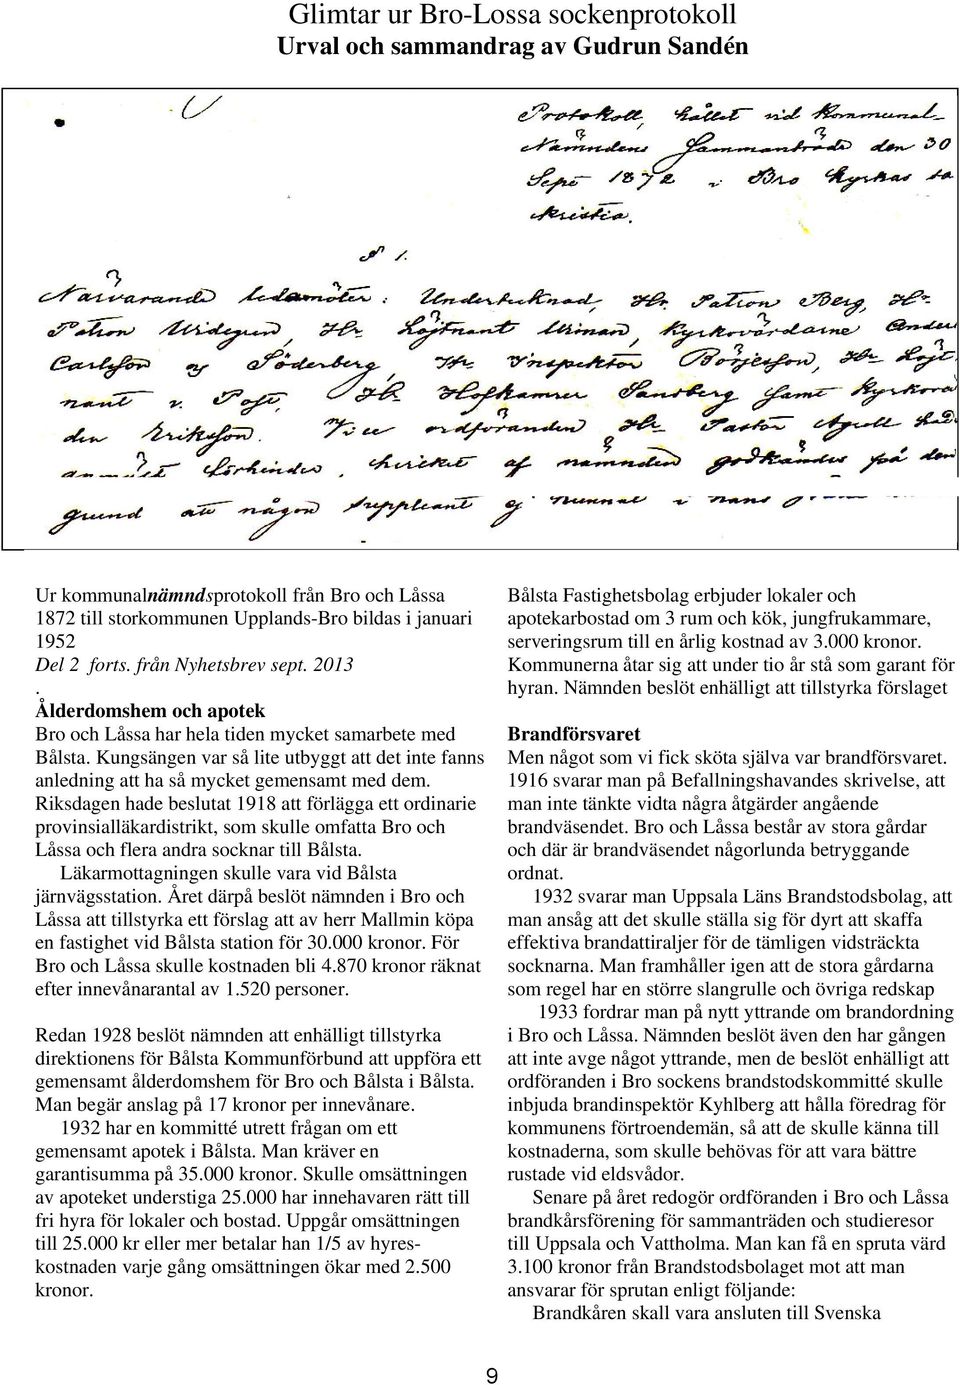 Glimtar ur Bro-Lossa sockenprotokoll
Urval och sammandrag av Gudrun Sandén
Protokoll, hållet vid Kommunal-
Nämndens Sammanträde den 30
Sept 1872 i Bro Kyrkas sa
kristia.
§ 1.
Närvarande ledamöter: Undertecknad, Hr. Patron Berg, Hr
Patron Widegren, Hr Löjtnant Wiman, Kyrkovärdarne Anders
Carlsson og Söderberg, Hr Inspektor Börjesson, Hr Löjt
nant v. Post, Hr Hofkamrer Sandberg samt Kyrkovär
den Erikson. Vice ordföranden Hr Pastor Agrell hade
anmält förhinder, hvilket af nämnden godkändes på den
grund att någon suppleant ej hunnat i hans
Ur kommunalnämndsprotokoll från Bro och Låssa
1872 till storkommunen Upplands-Bro bildas i januari
1952
Del 2 forts. från Nyhetsbrev sept. 2013
.
Ålderdomshem och apotek
Bro och Låssa har hela tiden mycket samarbete med
Bålsta. Kungsängen var så lite utbyggt att det inte fanns
anledning att ha så mycket gemensamt med dem.
Riksdagen hade beslutat 1918 att förlägga ett ordinarie
provinsialläkardistrikt, som skulle omfatta Bro och
Låssa och flera andra socknar till Bålsta.
Läkarmottagningen skulle vara vid Bålsta
järnvägsstation. Året därpå beslöt nämnden i Bro och
Låssa att tillstyrka ett förslag att av herr Mallmin köpa
en fastighet vid Bålsta station för 30.000 kronor. För
Bro och Låssa skulle kostnaden bli 4.870 kronor räknat
efter innevånarantal av 1.520 personer.
Redan 1928 beslöt nämnden att enhälligt tillstyrka
direktionens för Bålsta Kommunförbund att uppföra ett
gemensamt ålderdomshem för Bro och Bålsta i Bålsta.
Man begär anslag på 17 kronor per innevånare.
1932 har en kommitté utrett frågan om ett
gemensamt apotek i Bålsta. Man kräver en
garantisumma på 35.000 kronor. Skulle omsättningen
av apoteket understiga 25.000 har innehavaren rätt till
fri hyra för lokaler och bostad. Uppgår omsättningen
till 25.000 kr eller mer betalar han 1/5 av hyres-
kostnaden varje gång omsättningen ökar med 2.500
kronor.
Bålsta Fastighetsbolag erbjuder lokaler och
apotekarbostad om 3 rum och kök, jungfrukammare,
serveringsrum till en årlig kostnad av 3.000 kronor.
Kommunerna åtar sig att under tio år stå som garant för
hyran. Nämnden beslöt enhälligt att tillstyrka förslaget
Brandförsvaret
Men något som vi fick sköta själva var brandförsvaret.
1916 svarar man på Befallningshavandes skrivelse, att
man inte tänkte vidta några åtgärder angående
brandväsendet. Bro och Låssa består av stora gårdar
och där är brandväsendet någorlunda betryggande
ordnat.
1932 svarar man Uppsala Läns Brandstodsbolag, att
man ansåg att det skulle ställa sig för dyrt att skaffa
effektiva brandattiraljer för de tämligen vidsträckta
socknarna. Man framhåller igen att de stora gårdarna
som regel har en större slangrulle och övriga redskap
1933 fordrar man på nytt yttrande om brandordning
i Bro och Låssa. Nämnden beslöt även den har gången
att inte avge något yttrande, men de beslöt enhälligt att
ordföranden i Bro sockens brandstodskommitté skulle
inbjuda brandinspektör Kyhlberg att hålla föredrag för
kommunens förtroendemän, så att de skulle känna till
kostnaderna, som skulle behövas för att vara bättre
rustade vid eldsvådor.
Senare på året redogör ordföranden i Bro och Låssa
brandkårsförening för sammanträden och studieresor
till Uppsala och Vattholma. Man kan få en spruta värd
3.100 kronor från Brandstodsbolaget mot att man
ansvarar för sprutan enligt följande:
Brandkåren skall vara ansluten till Svenska
9